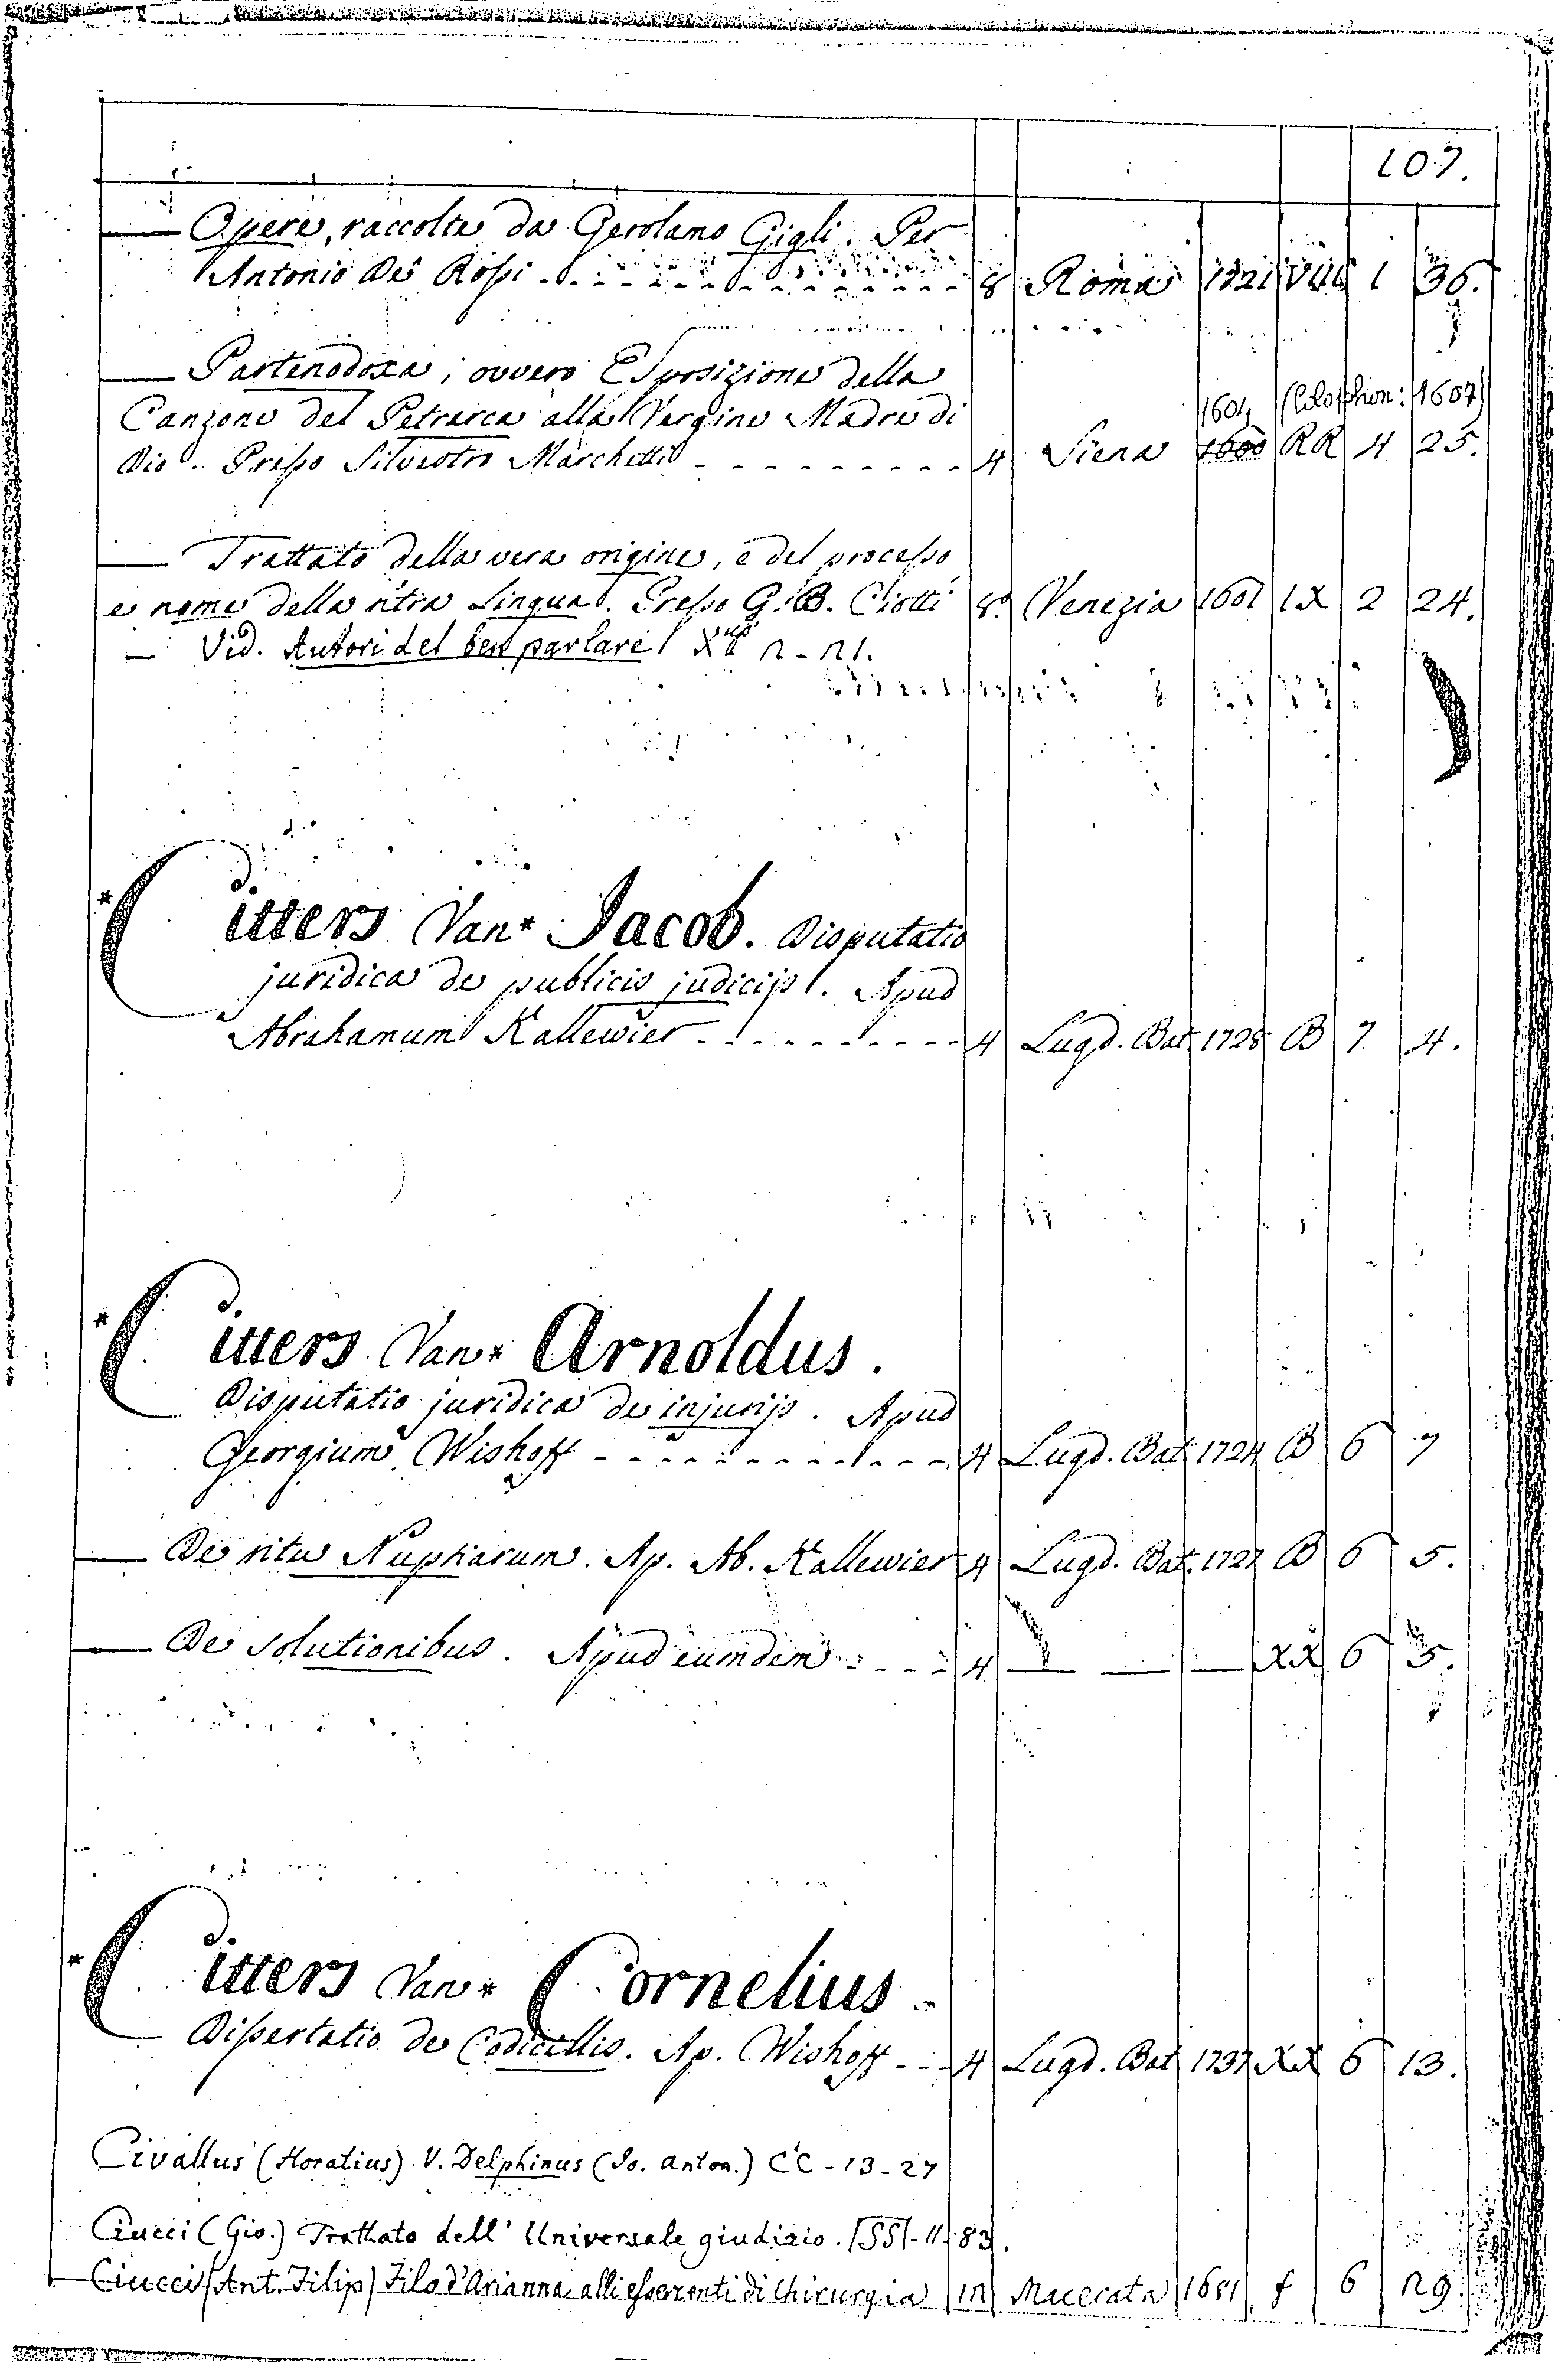 107.
— Opere, raccolte da Gerolamo Gigli. Per
Antonio De Rossi - - - - 8 Roma 1721 VIII 1 36.
— Partenodoxa, ovvero Esposizione della
Canzone del Petrarca alla Vergine Madre di 1604 (Colophon: 1607)
Dio. Presso Silvestro Marchetti - - - - 4 Siena 1600 RR 4 25.
— Trattato della vera origine, e del processo,
e nome della ntra Lingua. Presso G. B. Ciotti 8º Venezia 1601 IX 2 24.
— Vid. Autori del ben parlare
*Citters Van* Jacob. Disputatio
juridica de publicis judicijs. Apud
Abrahamum Kallewier - - - - 4 Lugd. Bat. 1728 B 7 4.
*Citters Van* Arnoldus.
Disputatio juridica de injurijs. Apud
Georgium Wishoff - - - - 4 Lugd. Bat. 1724 B 6 7
— De ritu Nuptiarum. Ap. Ab. Kallewier 4 Lugd. Bat. 1727 B 6 5.
— De solutionibus. Apud eumdem - - - - 4 — — — XX 6 5.
*Citters Van* Cornelius.
Dissertatio de Codicillis. Ap. Wishoff - - - 4 Lugd. Bat 1737 XX 6 13.
Civallus (Horatius). V. Delphinus (Jo. Anton.) CC - 13 - 27
Ciucci (Gio.) Trattato dell' Universale giudizio. |SS| - 11 - 83.
Ciucci (Ant. Filip) Filo d'Arianna alli esserenti di Chirurgia 12 Macerata 1681 f 6 29.